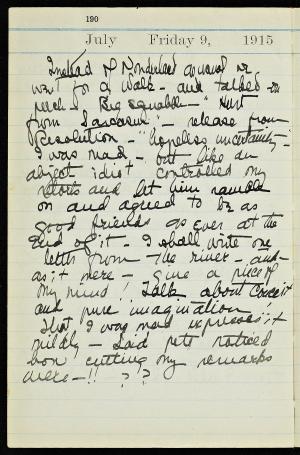 190
July Friday 9, 1915
Instead of Wonderland around we
went for a walk - and talked on
Big squabble - "Hurt
from Sarcasm" - release from
Resolution - "hopeless uncertainty" -
I was mad - but like an
abject idiot controlled my
retorts and let him ramble
on and agreed to be as
good friends as ever at the
end of it - I shall write one
letter from the river - and -
as it were - give a piece of
my mind! Talk about Conceit
and pure imagination,
That I was mad expresses it
mildly - Said pets noticed
how cutting my remarks
were - !! ? ?